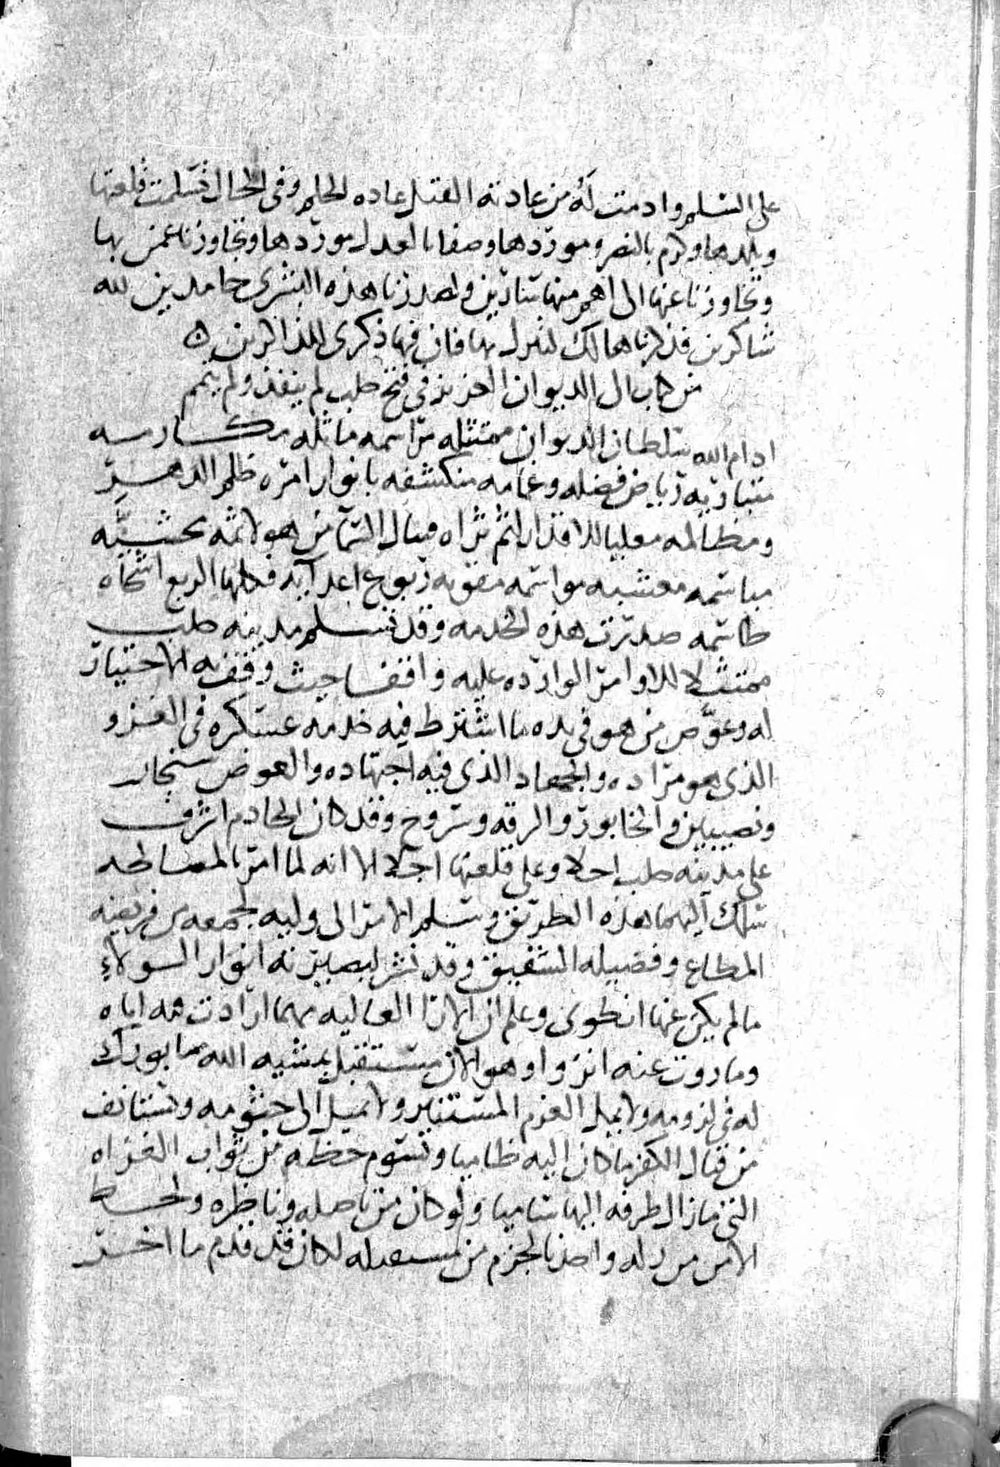 على السلم وادمت له من عادته القتل عاده الحلم وفى الحال تسلمت قلعتها
وبلدها وكرم بالنصر وموردها وصفا بالعدل موردها وتجاوزنا عمن بها
وتجاوزنا عنها الى اهم منها سارين واصدرنا هذه البشرى حامدين لله
شاكرين فذكرناها لك لتدل بها فان فيها ذكرى للذاكرين ه
من كتاب الى الديوان العزيز فى فتح حلب لم ينفذ ولم يتمم
ادام الله سلطان الديوان ممتثله مراسمه ماثله مكارمه
متباريه رياض فضله وغمامه منكشفه بانوار امره ظلم الدهر
ومظالمه معليا للاقدار لثم ثراه فينال الشرف من هو لاثمه بحشيه
مباسمه معشبه مواسمه مقويه ربوع اعدايه فكلها الربع اشجاه
طاسمه صدرت هذه الخدمه وقد تسلم مدينه حلب
ممتثلا للاوامر الوارده عليه واقفا حيث وقفه الاختيار
له وعوض من هو فى يده ما اشترط فيه خدمه عسكره فى الغزو
الذى هو مراده والجهاد الذى فيه اجتهاده والعوض سنجار
ونصيبين والخابور والرقه وسروج وقد كان الخادم اشرف
على مدينه حلب اجلا وعلى قلعتها اجلا الا انه لما امر بالمصالحه
سلك اليهما هذه الطريق وسلم الامر الى وليه لجمعه بين فريضه
المطاع وفضيله الشفيق وقد نشر لبصيرته انوار الولاء
ما لم يكن عنها انطوى وعلم ان الارا العاليه مهما ارادت هداياه
وما روت عنه انزوا وهو الان مستقبل بمشيه الله ما بورك
له فى لزومه ولا يمل العزم المستنير ولا يميل الى جثومه ويستانف
من قتال الكفر ما كان اليه ظاميا ويسوم حظه من ثواب الغزاه
التى ما زال طرفه اليها ساميا ولو كان من ناصله وناظره ولحظ
الامر من دله واخذ بالحزم من مستقبله لكان قد قدم ما اخر